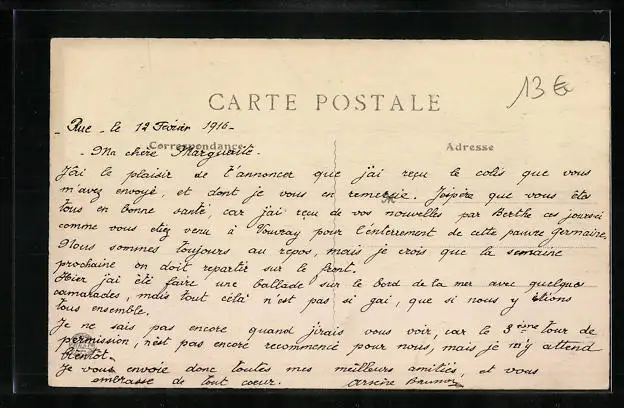 13 €
CARTE POSTALE
- Rue - le 12 Février 1916 -
Correspondance
Adresse
- Ma chère Marguerite.
J'ai le plaisir de t'annoncer que j'ai reçu le colis que vous
m'avez envoyé, et dont je vous en remercie. J'espère que vous êtes
tous en bonne santé, car j'ai reçu de vos nouvelles par Berthe ces jours-ci
comme vous étiez venu à Vouvray pour l'enterrement de cette pauvre Germaine.
Nous sommes toujours au repos, mais je crois que la semaine
prochaine on doit repartir sur le front.
Hier j'ai été faire une ballade sur le bord de la mer avec quelques
camarades, mais tout cela n'est pas si gai, que si nous y étions
tous ensemble.
Je ne sais pas encore quand j'irais vous voir, car le 3ème tour de
permission, n'est pas encore recommencé pour nous, mais je m'y attend
bientôt.
Je vous envoie donc toutes mes meilleurs amitiés, et vous
embrasse de tout coeur. Arsène